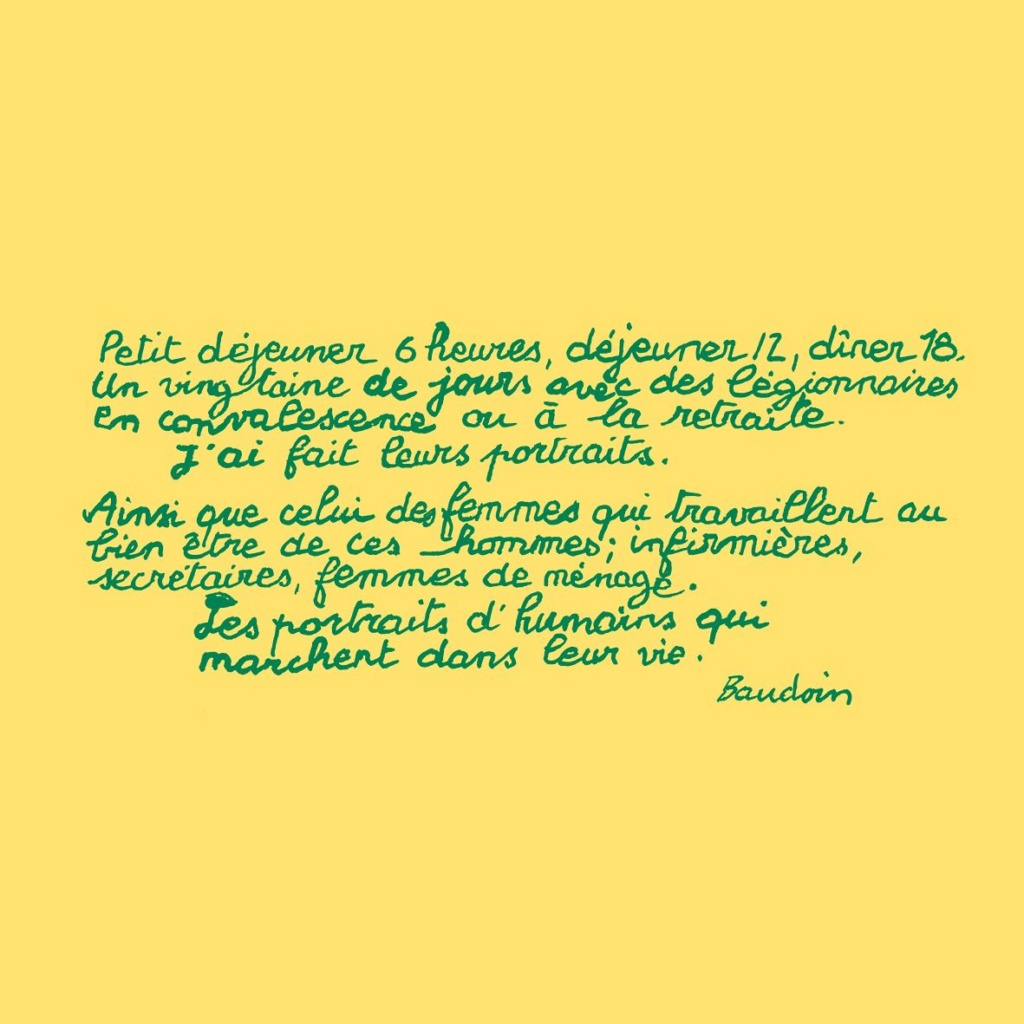 Petit déjeuner 6 heures, déjeuner 12, dîner 18.
Un vingtaine de jours avec des légionnaires
en convalescence ou à la retraite.
J'ai fait leurs portraits.
Ainsi que celui des femmes qui travaillent au
bien être de ces hommes; infirmières,
secrétaires, femmes de ménage.
Les portraits d'humains qui
marchent dans leur vie.
Baudoin